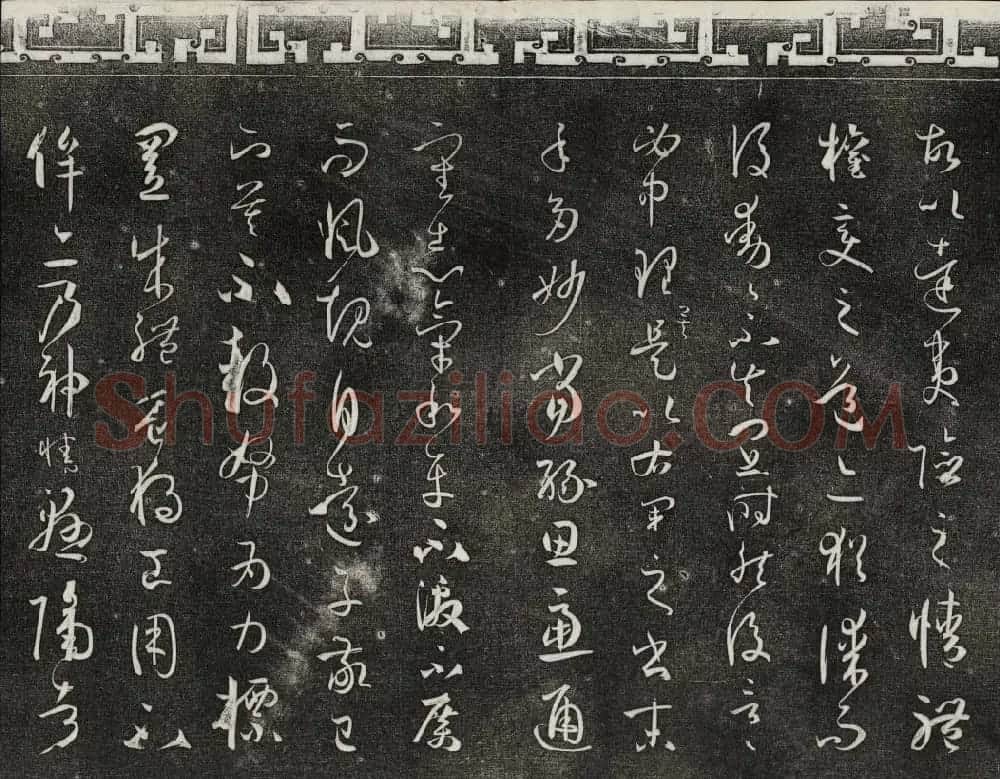 故以達夷險之情體
權變之道亦猶謀而
後動〻不失宜時然後言〻
必中理矣是以右軍之書末
年多妙當緣思慮通
審志氣和平不激不厲
而風規自遠子敬已
下莫不鼓努為力標
置成體豈獨工用不
侔亦乃神情懸隔者
Shufaziliao.COM